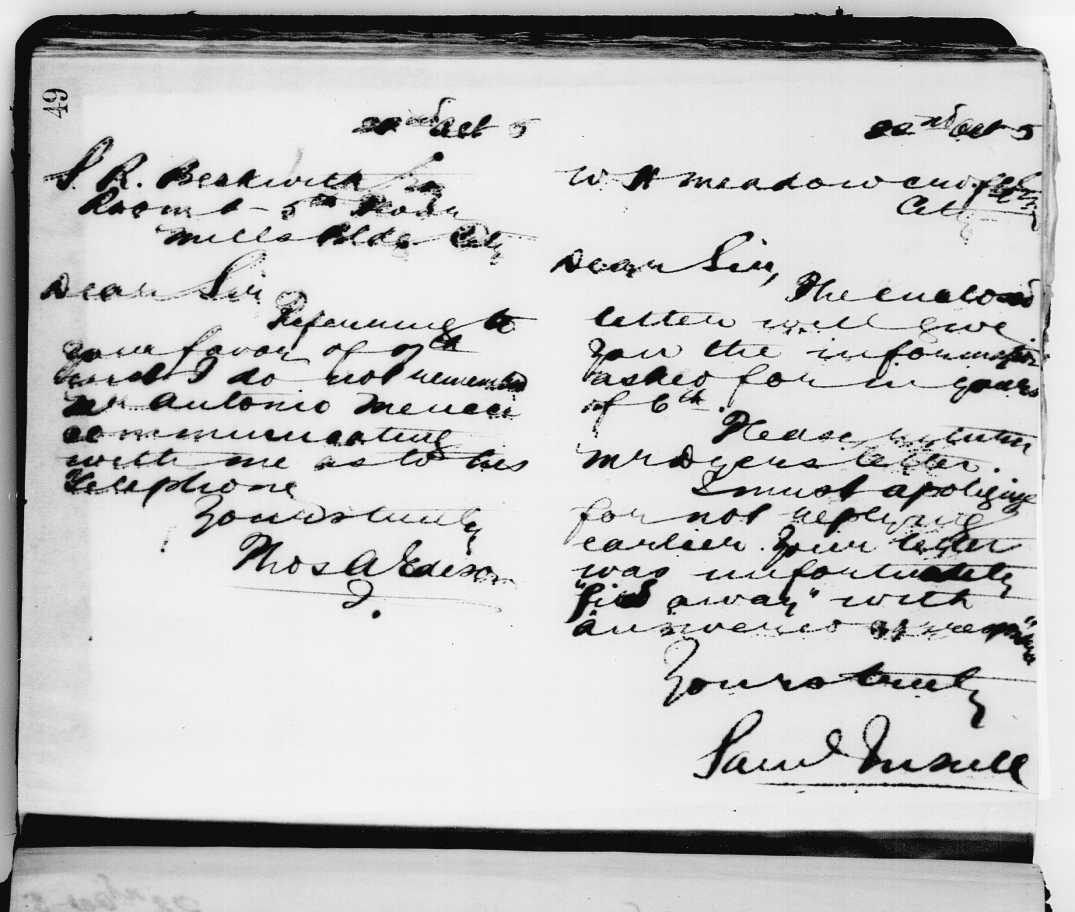 49
22nd Oct 5
S. R. Beckwith Esq
Room 6 - 5th
Mills Bldg City
Dear Sir
Referring to
your favor of 9th
inst I do not remember
Mr Antonio Meucci
communicating
with me as to his
Telephone
Yours truly
Thos A Edison
22nd Oct 5
W H Meadowcroft Esq
City
Dear Sir,
The enclosed
letter will give
you the information
asked for in yours
of 6th.
Please return
Mr Dyers letter.
I must apologize
for not replying
earlier. Your letter
was unfortunately
"filed away" with
"answered
Yours truly
Saml Insull